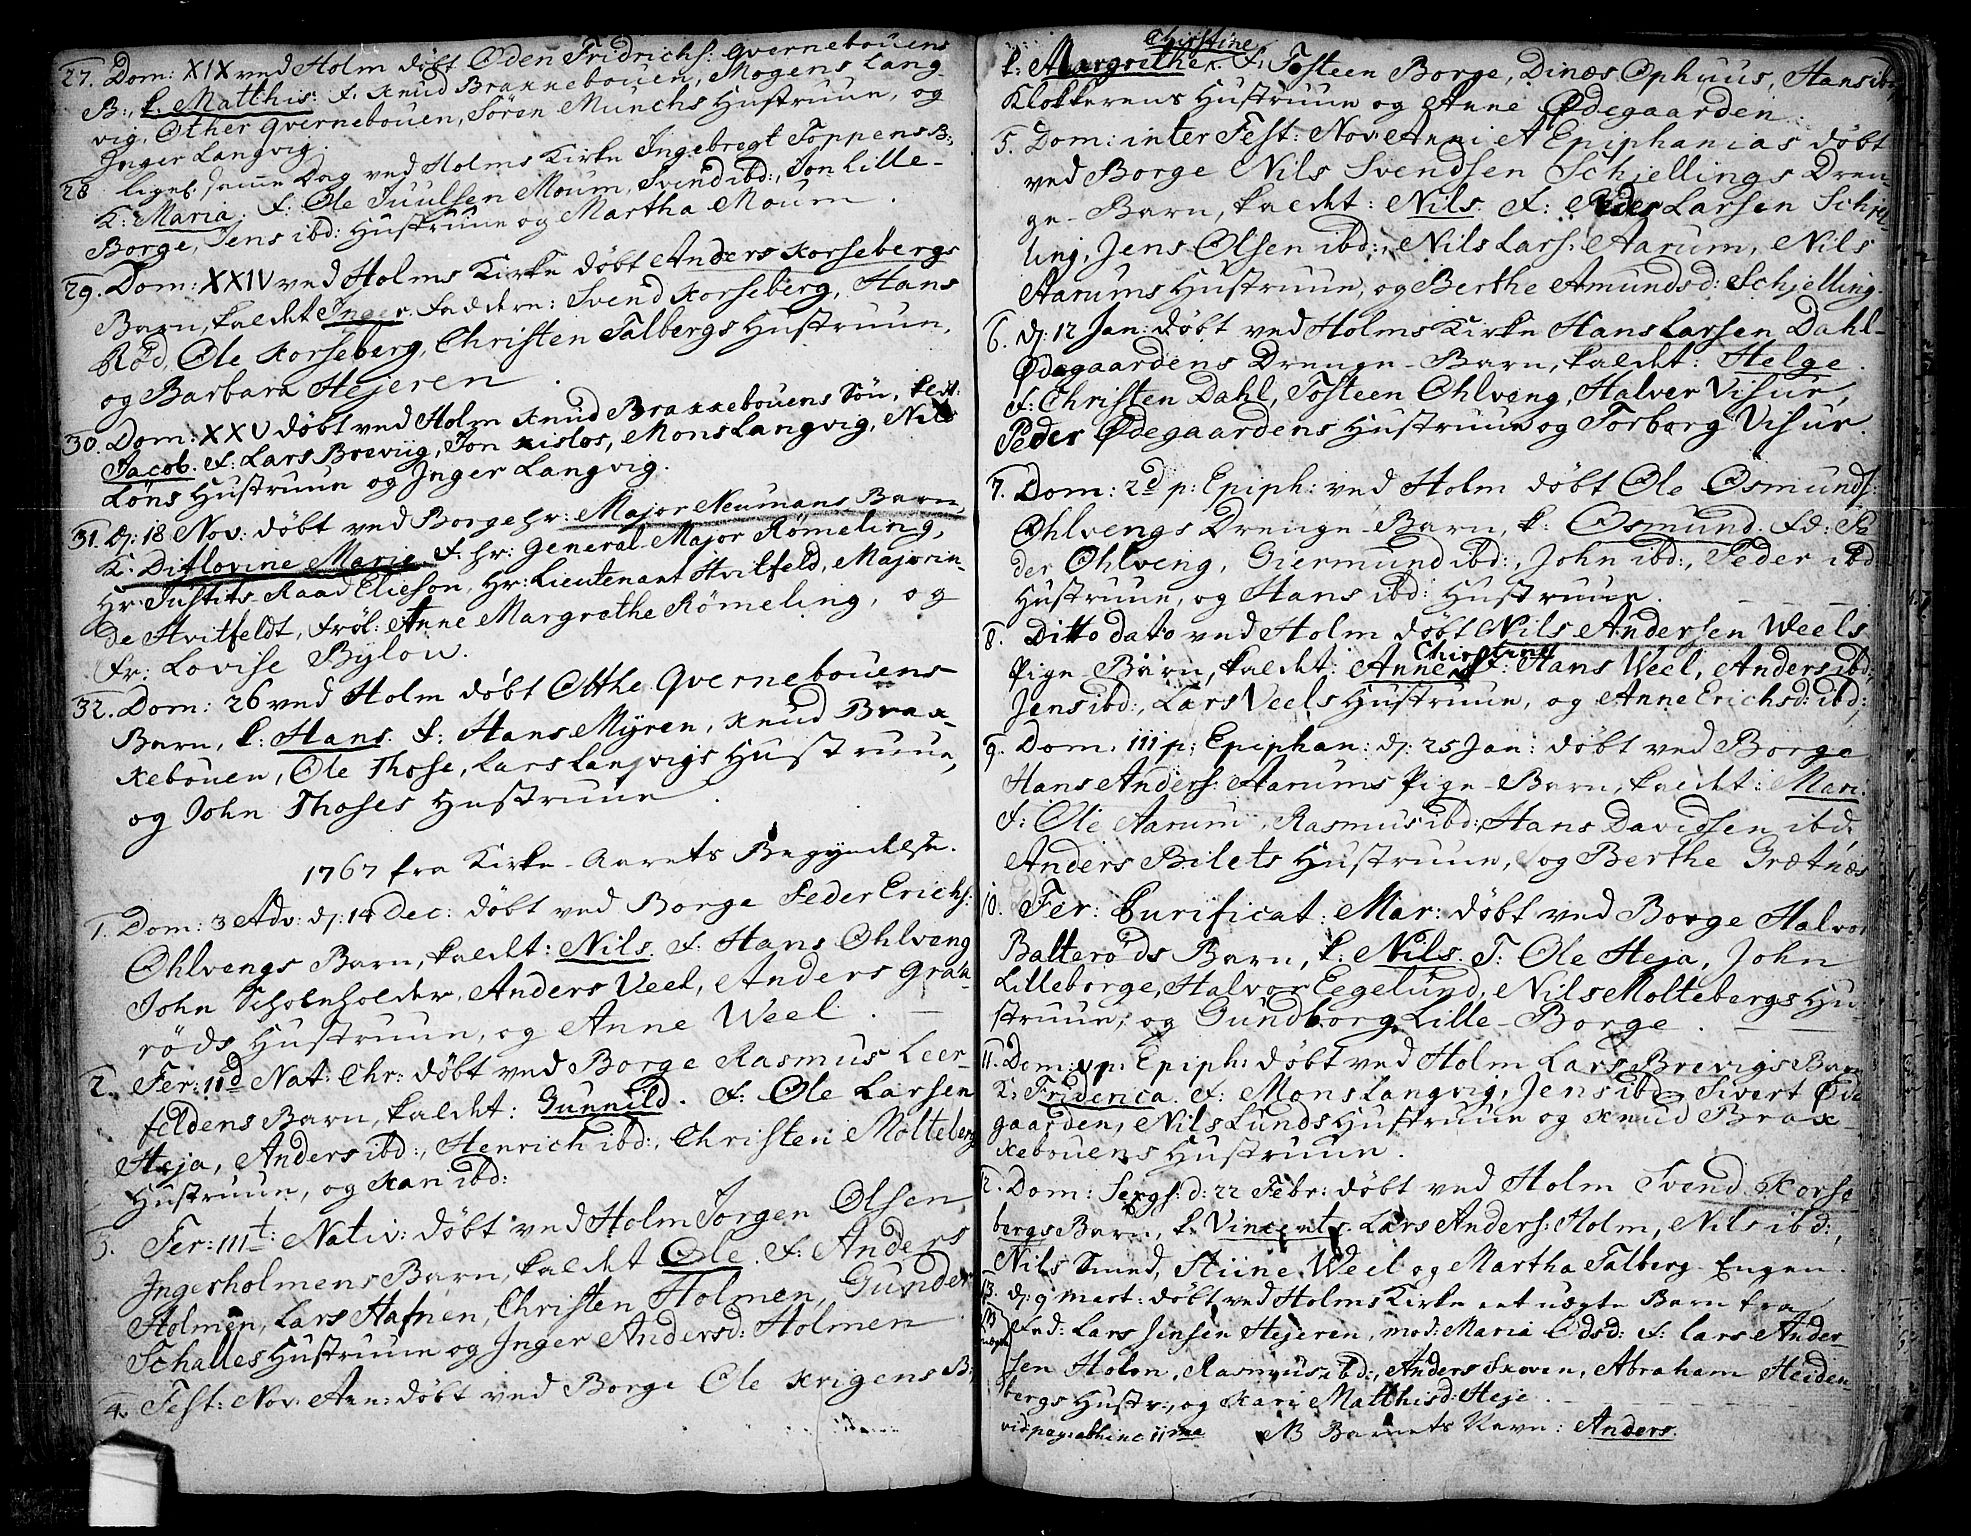 27. Dom: XIX ved Holm døbt Oden Fridrichs: Qvernebouens
B:, k. Matthis. f. Knud Brakkebouen, Mogens Lang-
vig, Other Qvernebouen, Søren Munchs Hustruue, og
Inger Langvig.
28 ligel. samme Dag ved Holms Kirke Ingebregt Toppens B:
K: Maria. f: Ole Juulsen Moum, Svend ibd:, Jon Lille-
Borge, Jens ibd: Hustruue og Martha Moum.
29. Dom: XXIV ved Holms Kirke døbt Anders Korsebergs
Barn, kaldet Inger. Faddere: Svend Korseberg, Hans
Rød, Ole Korseberg, Christen Talbergs Hustruue,
og Barbara Hejeren.
30. Dom: XXV døbt ved Holm Knud Brakkebouens Søn, keldt:
Jacob. f: Lars Breviig, Jon Kisløs, Mons Langvig, Nils
Løns Hustruue og Inger Langvig.
31. d: 18 Nov: døbt ved Borge Hr: Major Neumans Barn,
K: Ditlovine Marie f. Hr: General-Major Römeling,
Hr: Justits-Raad Elieson, Hr: Lieutenant Hvitfeld, Majorin-
de Hvitfeldt, Frøl: Anne Margrethe Römeling, og
Fr: Lovise Bylow.
32. Dom: 26 ved Holm døbt Otthe Qvernebouens
Barn, k: Hans. f: Hans Myren, Knud Brak-
kebouen, Ole Those, Lars Langvigs Hustruue,
og John Thoses Hustruue.
1767 fra Kirke-Aarets Begyndelse.
1. Dom: 3 Adv: d: 14 Dec: døbt ved Borge Peder Erichs:
Ohlvengs Barn, kaldet: Nils. f. Hans Ohlveng
John Scholeholder, Anders Veel, Anders Graa-
røds Hustruue, og Anne Weel.
2. Fer: IId Nat: Chr: døbt ved Borge Rasmus Leer-
foldens Barn, kaldet: Gunnild. f: Ole Larsen
Heja, Anders ibd:, Henrich ibd:, Christen Molteberg
Hustruue, og Kari ibd:
3. Fer: IIIt: Nativ: døbt ved Holm Jørgen Olsen
Ingerholmens Barn, kaldet Ole. f: Anders
Holmen, Lars Hafnen, Christen Holmen, Gunder
Schalles Hustruue og Inger Andersd: Holmen
4. Fest: Nov. Ann: døbt ved Borge Ole Krigens B:
Christine
k: Margrethe. f: Tosteen Borge, Dines Ophuus, Hans ibd
Klokkerens Hustruue og Anne Ødegaarden.
5. Dom: inter Fest: Nov: Anni et Epiphanias døbt
ved Borge Nils Svendsen Schjellings Dren-
ge-Barn, kaldet: Nils. f: Peder Larsen Schjel-
ling, Jens Olsen ibd:, Nils Lars: Aarum, Nils
Aarums Hustruue, og Berthe Amundsd: Schjelling.
6. d: 12 Jan: døbt ved Holms Kirke Hans Larsen Dahl-
Ødegaardens Drenge-Barn, kaldet: Helge.
f: Christen Dahl, Tosteen Ohlveng, Halver Visur,
Peder Ødegaardens Hustruue og Torborg Visur.
7. Dom: 2d p: Epiph: ved Holm døbt Ole Osmunds:
Ohlvengs Drenge-Barn, k: Osmund. Fd: Pe
der Ohlveng, Giermund ibd:, John ibd:, Peder ibd:
Hustruue, og Hans ibd: Hustruue.
8. Ditto dato ved Holm døbt Nils Andersen Weels
Christine
Pige-Barn, kaldet: Anne f: Hans Weel, Anders ibd:
Jens ibd:, Lars Veels Hustruue, og Anne Erichsd: ibd:,
9. Dom. III p: Epiphan: d: 25 Jan: døbt ved Borge
Hans Anders: Aarums Pige-Barn, kaldet: Mari.
f: Ole Aarum, Rasmus ibd:, Hans Davidsen ibd.
Anders Bilets Hustruue, og Berthe Grætnes
10. Fer: Purificat: Mar: døbt ved Borge Halvor
Balterøds Barn, k. Nils. F: Ole Heja, John
Lilleborge, Halvor Eegelund, Nils Moltebergs Hu-
struue, og Gundborg Lille-Borge.
11. Dom: v p: Epiph: døbt ved Holm Lars Brevigs Barn
K: Friderica. f: Mons Langvig, Jens ibd: Sivert Øde
gaarden, Nils Lunds Hustruue og Knud Brak-
kebouens Hustruue.
2. Dom: Sexgs: d: 22 Febr: døbt ved Holm Svend Korse-
bergs Barn, k. Vincents. Lars Anders: Holm, Nils ibd:,
Nils Smed, Stiine Weel og Martha Talberg-Engen.
13. d: 9 Mart: døbt ved Holms Kirke eet uægte Barn
Fad: Lars Jensen Hejeren, mod: Maria Olsd: f: Lars Ander-
sen Holm, Rasmus ibd:, Anders Skoven, Abraham Heiden-
bergs Hustr:, og Kari Matthisd: Heje.
NB Barnets Navn: Anders.